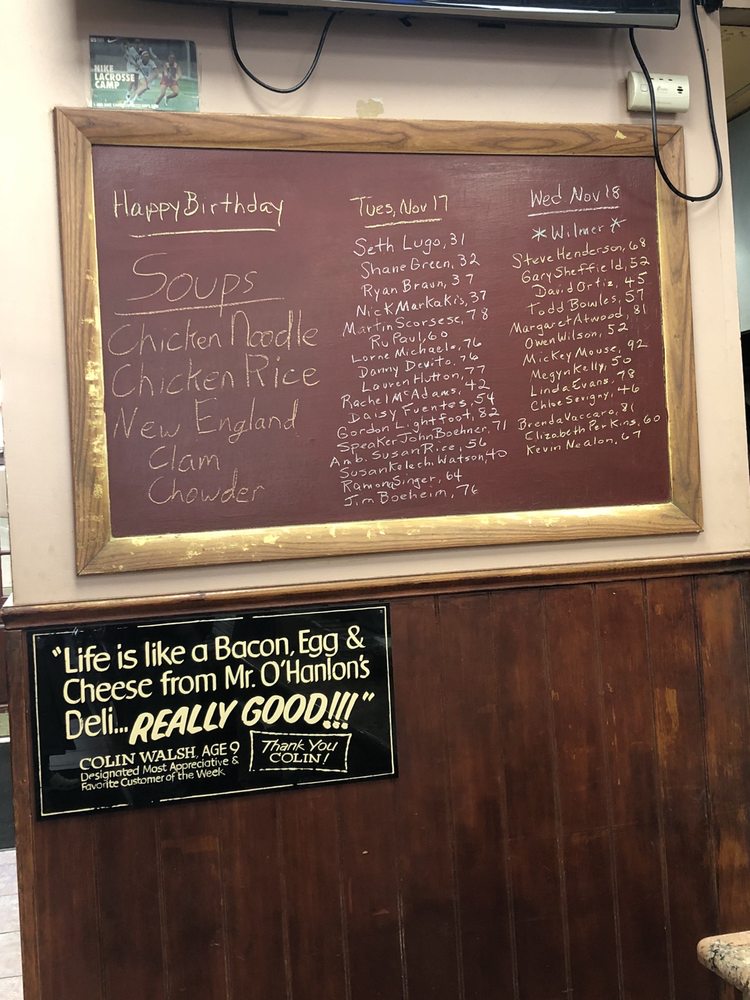 NIKE
LACROSSE
CAMP
Happy Birthday
Soups
Chicken Noodle
Chicken Rice
New England
Clam
Chowder
Tues, Nov 17
Seth Lugo, 31
Shane Green, 32
Ryan Braun, 37
Nick Markakis, 37
Martin Scorsese, 78
Ru Paul, 60
Lorne Michaels, 76
Danny Devito, 76
Lauren Hutton, 77
Rachel McAdams, 42
Daisy Fuentes, 54
Gordon Lightfoot, 82
Speaker John Boehner, 71
Amb. Susan Rice, 56
Susan Kelechi Watson, 40
Ramona Singer, 64
Jim Boeheim, 76
Wed Nov 18
*Wilmer*
Steve Henderson, 68
Gary Sheffield, 52
David Ortiz, 45
Todd Bowles, 57
Margaret Atwood, 81
Owen Wilson, 52
Mickey Mouse, 92
Megyn Kelly, 50
Linda Evans, 78
Chloe Sevigny, 46
Brenda Vaccaro, 81
Elizabeth Perkins, 60
Kevin Nealon, 67
"Life is like a Bacon, Egg &
Cheese from Mr. O'Hanlon's
Deli... REALLY GOOD!!!"
COLIN WALSH, AGE 9
Designated Most Appreciative &
Favorite Customer of the Week
Thank You
COLIN!